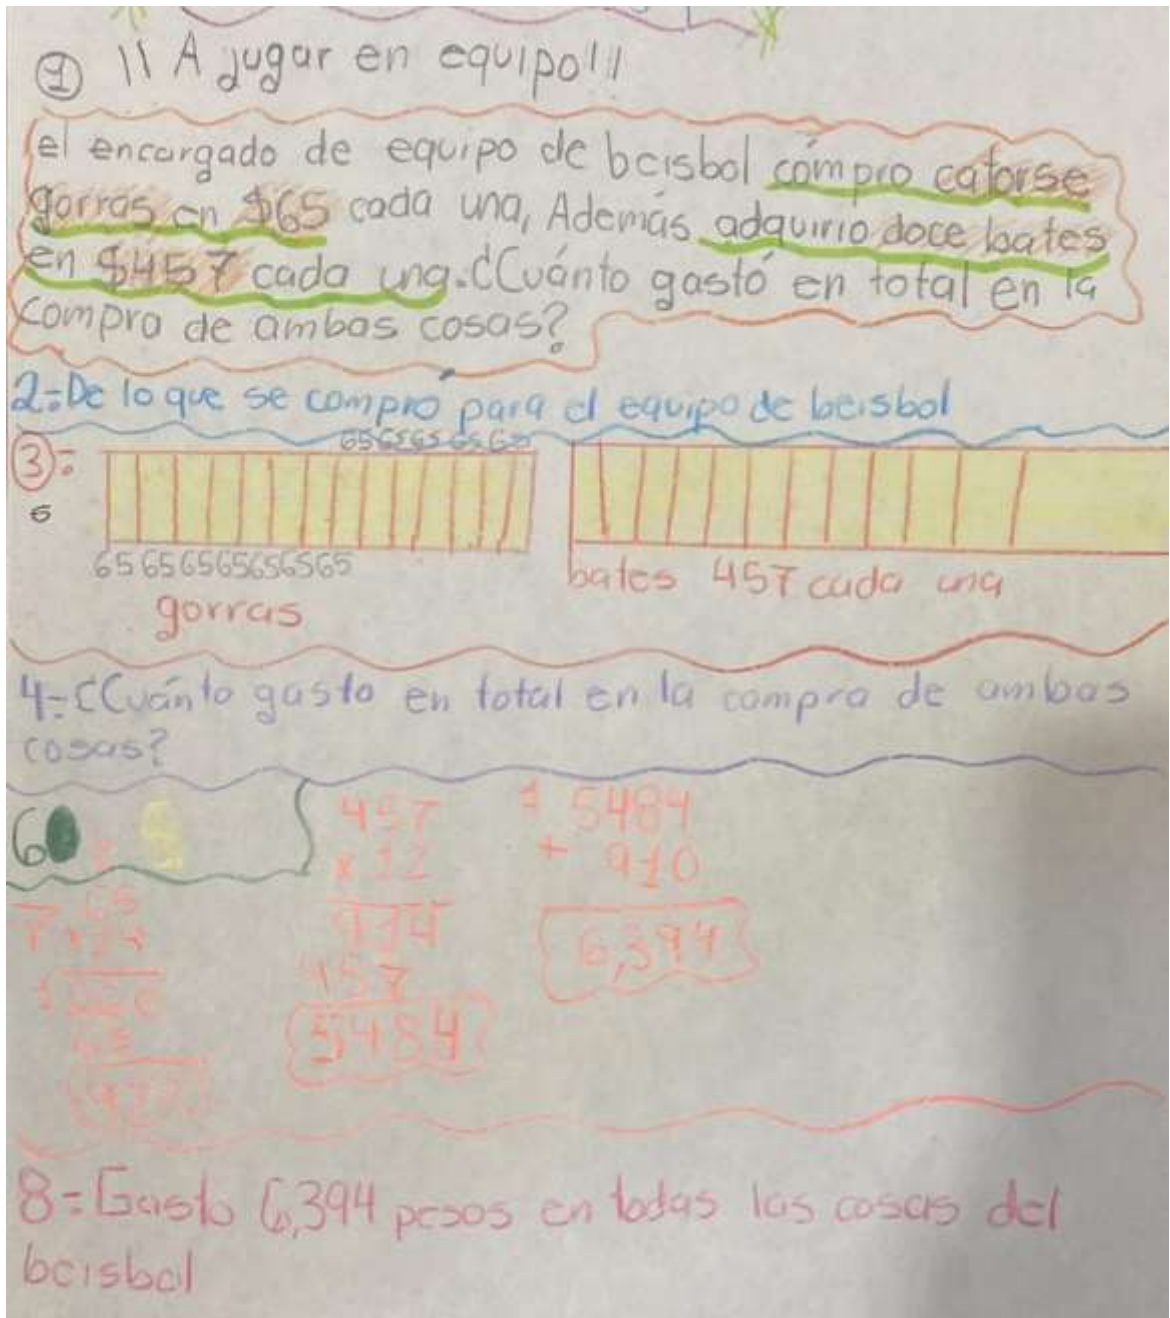 ① ¡¡ A jugar en equipo!!
el encargado de equipo de beisbol cómpro catorse
gorras en $65 cada una, Además adquirio doce bates
en $457 cada una. ¿Cuánto gastó en total en la
compra de ambas cosas?
2=De lo que se compró para el equipo de beisbol
65 65 65 65 65
3=
6
65 65 65 65 65 65 65
bates 457 cada una
gorras
4=¿Cuánto gasto en total en la compra de ambas
cosas?
6
5
457
x 12
5484
+ 910
6,394
7
65
914
457
5484
65
8=Gasto 6,394 pesos en todas las cosas del
beisbol